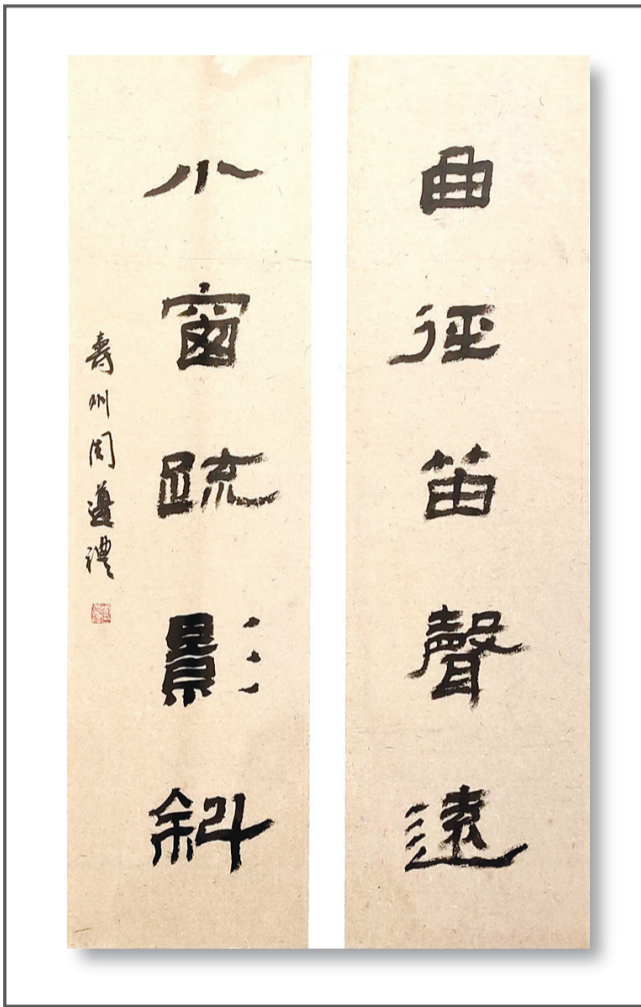 曲徑笛聲遠
小窗疏影斜
壽州周遵禮